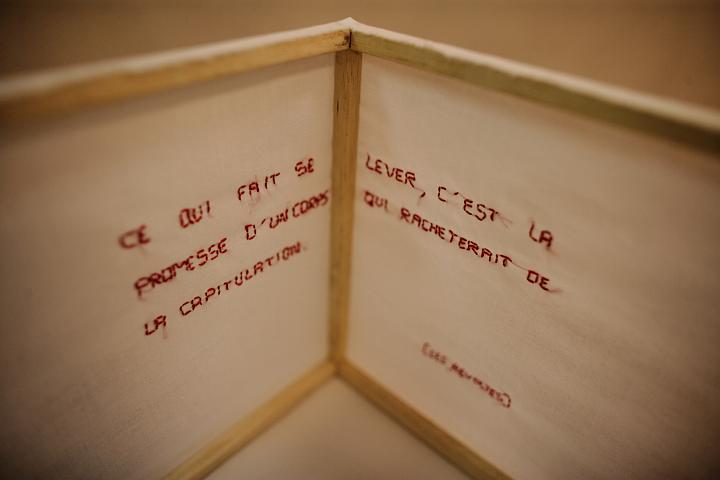 CE QUI FAIT SE LEVER, C'EST LA
PROMESSE D'UN CORPS QUI RACHETERAIT DE
LA CAPITULATION.